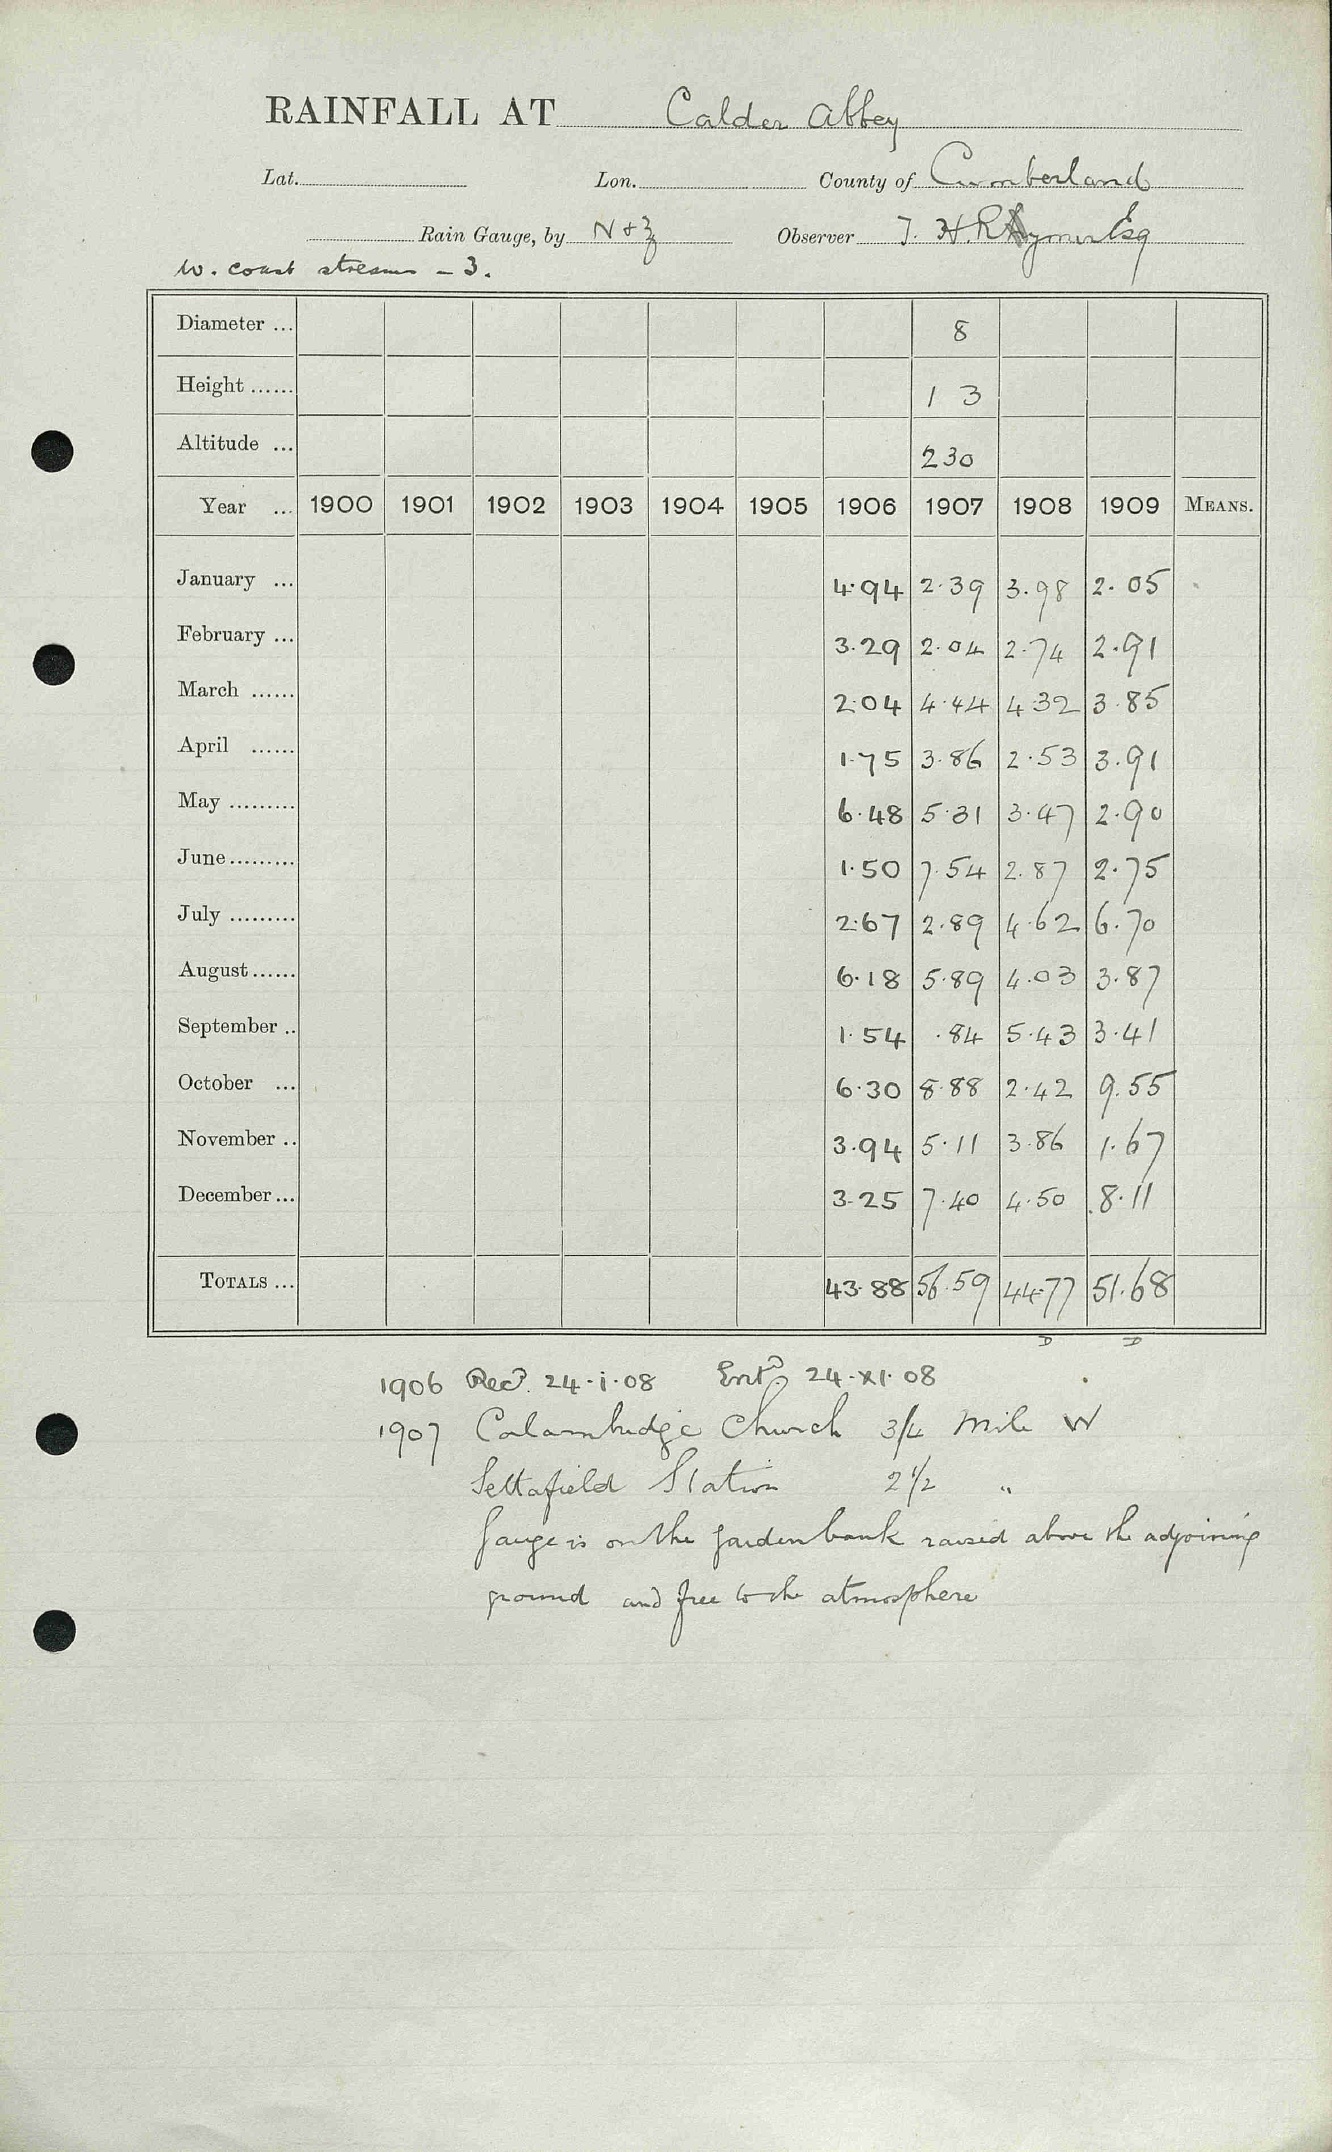 RAINFALL AT Calder Abbey
Lat. Lon. County of Cumberland
Rain Gauge, by N & Z Observer T. H. Rymer Esq
W. coast streams - 3.
Diameter ... 8
Height ...... 1 3
Altitude ... 230
Year ... 1900 1901 1902 1903 1904 1905 1906 1907 1908 1909 MEANS.
January ... 4.94 2.39 3.98 2.05
February ... 3.29 2.04 2.74 2.91
March ...... 2.04 4.44 4.32 3.85
April ...... 1.75 3.86 2.53 3.91
May ......... 6.48 5.31 3.47 2.90
June ......... 1.50 7.54 2.87 2.75
July ......... 2.67 2.89 4.62 6.70
August ...... 6.18 5.89 4.03 3.87
September .. 1.54 .84 5.43 3.41
October ... 6.30 8.88 2.42 9.55
November .. 3.94 5.11 3.86 1.67
December ... 3.25 7.40 4.50 8.11
TOTALS ... 43.88 56.59 44.77 51.68
D D
1906 Recd. 24.i.08 Entd. 24.xi.08
1907 Calambridge Church 3/4 Mile W
Settafield Station 2 1/2 "
Gauge is on the garden bank raised above the adjoining
ground and free to the atmosphere